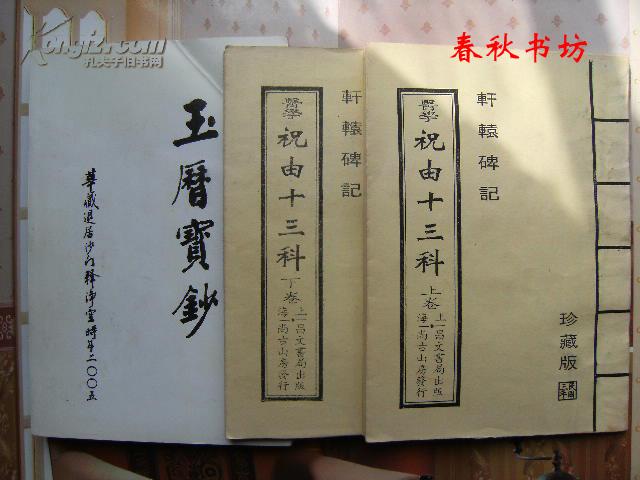 春秋书坊
Kongfz.com
孔夫子旧书网
軒轅碑記
醫學
祝由十三科
上卷
上一昌文書局出版
海一尚古山房發行
珍藏版
軒轅碑記
醫學
祝由十三科
下卷
上一昌文書局出版
海一尚古山房發行
玉曆寶鈔
華藏退居沙门釋淨空時年二〇〇五